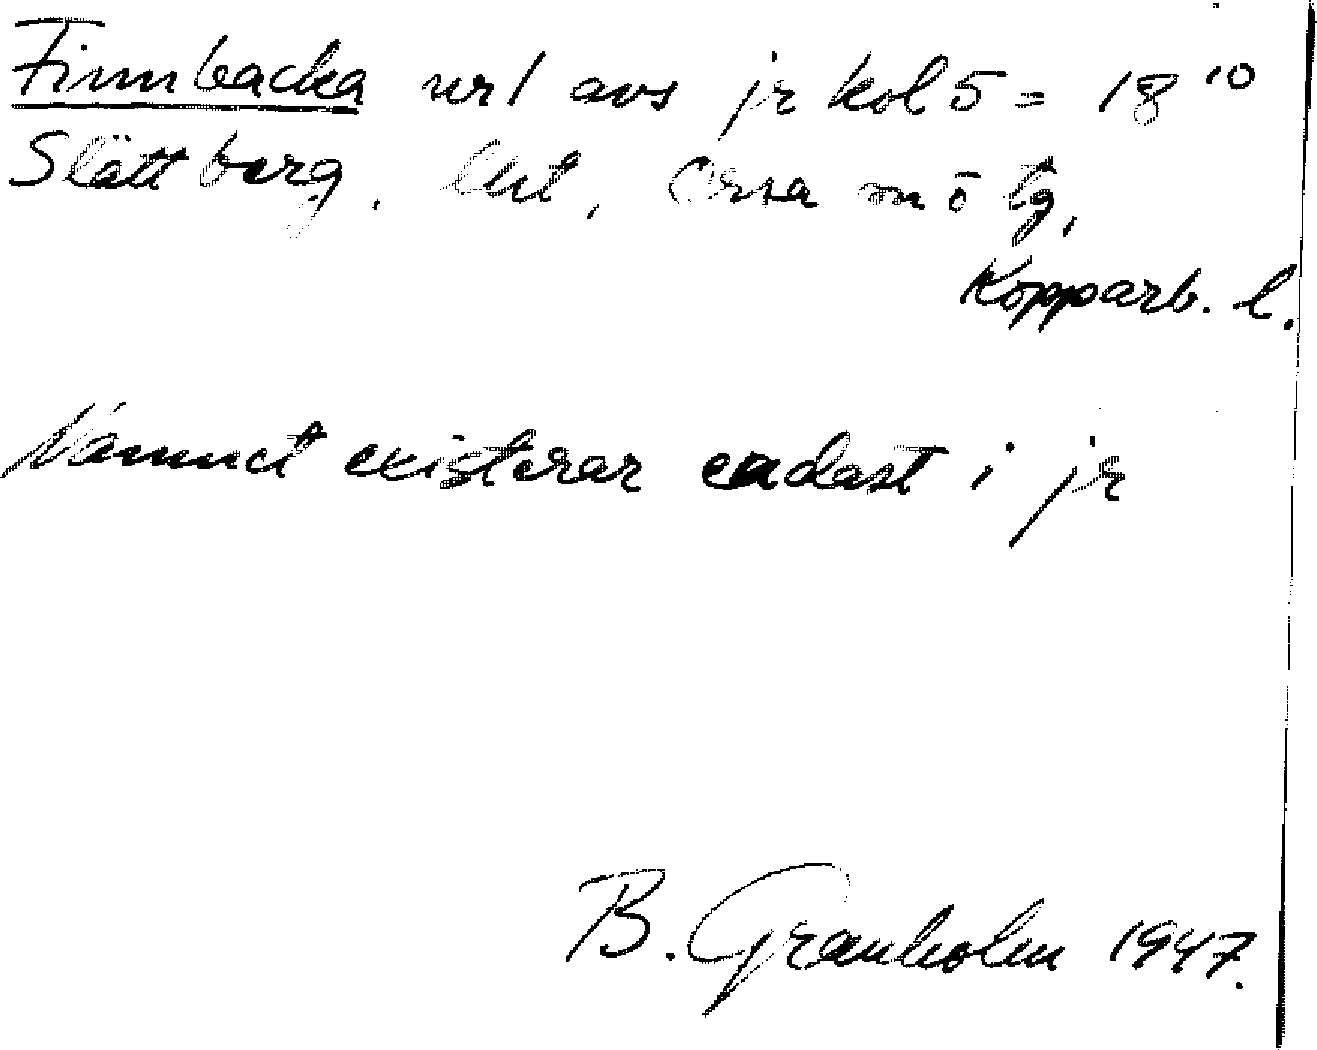 Finnbacka nr 1 avs jr kol 5 = 18¹⁰
Slättberg, Orsa m ö tg,
Kopparb. l.
Namnet existerar endast i jr
B. Granholm 1947.